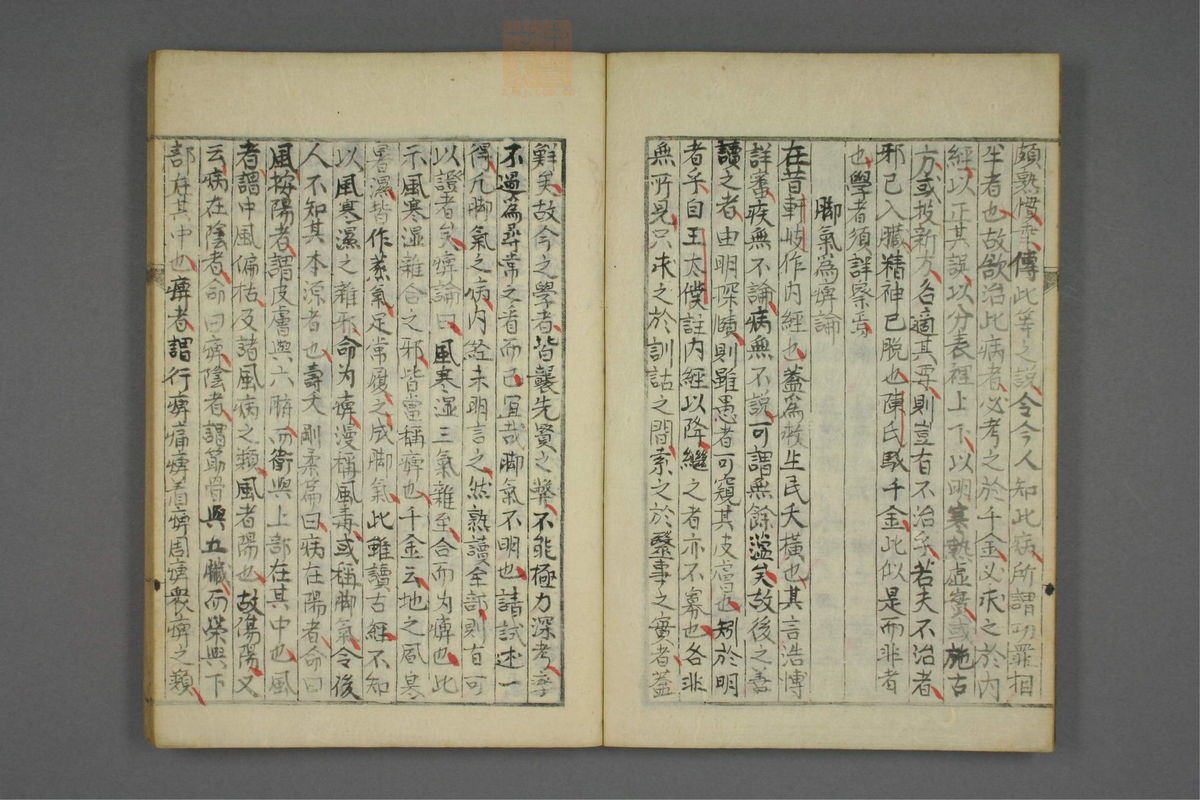 頗熟慣乎傳此等之説令今人知此病所謂功罪相
半者也故欲治此病者必考之於千金必求之於内
經以正其誤以分表裡上下以明寒熱虚實或施古
方或投新方各適其再則豈有不治乎若夫不治者
邪已入臓精神已脱也陳氏駁千金此似是而非者
也學者須詳察焉
脚氣為痺論
在昔軒岐作内經也蓋為救生民夭横也其言浩博
詳審疾無不論病無不説可謂無餘薀矣故後之善
讀之者由明探賾則雖愚者可窺其皮膚也矧於明
者乎自王太僕註内經以降繼之者亦不寡也各非
無所見只求之於訓詁之間索之於緊事之實者蓋
鮮矣故今之學者皆襲先賢之弊不能極力深考率
不過為尋常之看而已宜哉脚氣不明也請試述一
得凡脚氣之病内経未明言之然熟讀全部則有可
以證者矣痺論曰風寒湿三氣雜至合而为痺也此
示風寒湿雜合之邪皆當稱痺也千金云地之風寒
暑濕皆作蒸氣足常履之成脚氣此雖讀古經不知
以風寒濕之雜邪命为痺漫稱風毒或稱脚氣令後
人不知其本源者也壽夭剛柔篇曰病在陽者命曰
風按陽者謂皮膚與六腑而衛與上部在其中也風
者謂中風偏枯及諸風病之類風者陽也故傷陽又
云病在陰者命曰痺陰者謂筋骨與五臓而榮與下
部在其中也痺者謂行痺痛痺着痺周痺衆痺之類